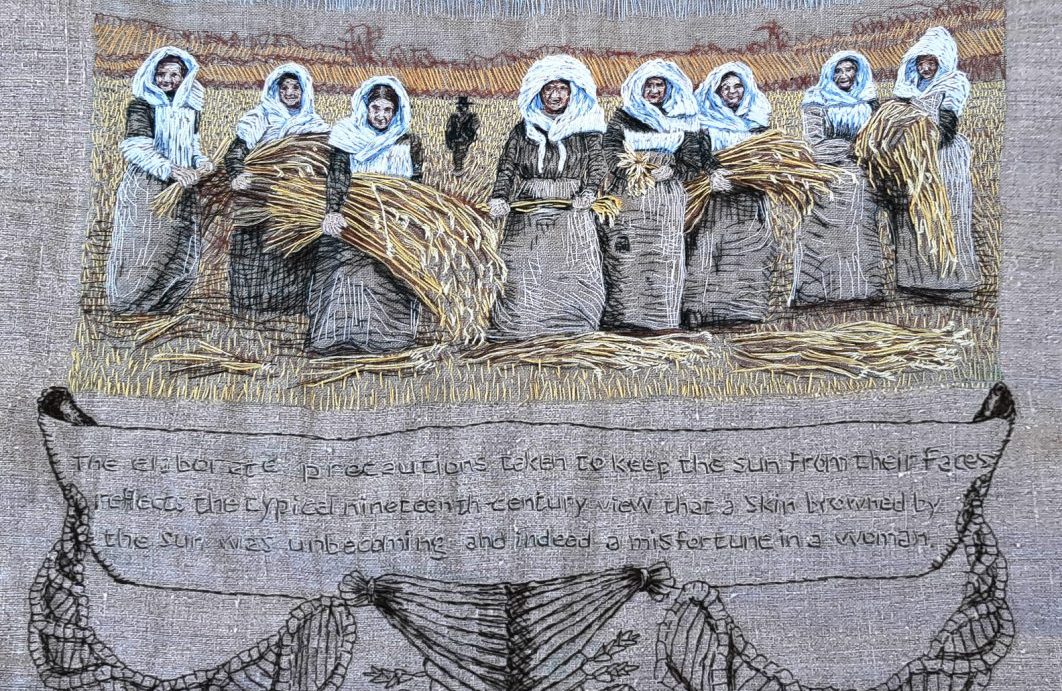 The elaborate precautions taken to keep the sun from their faces
reflects the typical nineteenth-century view that a skin browned by
the sun was unbecoming and indeed a misfortune in a woman.